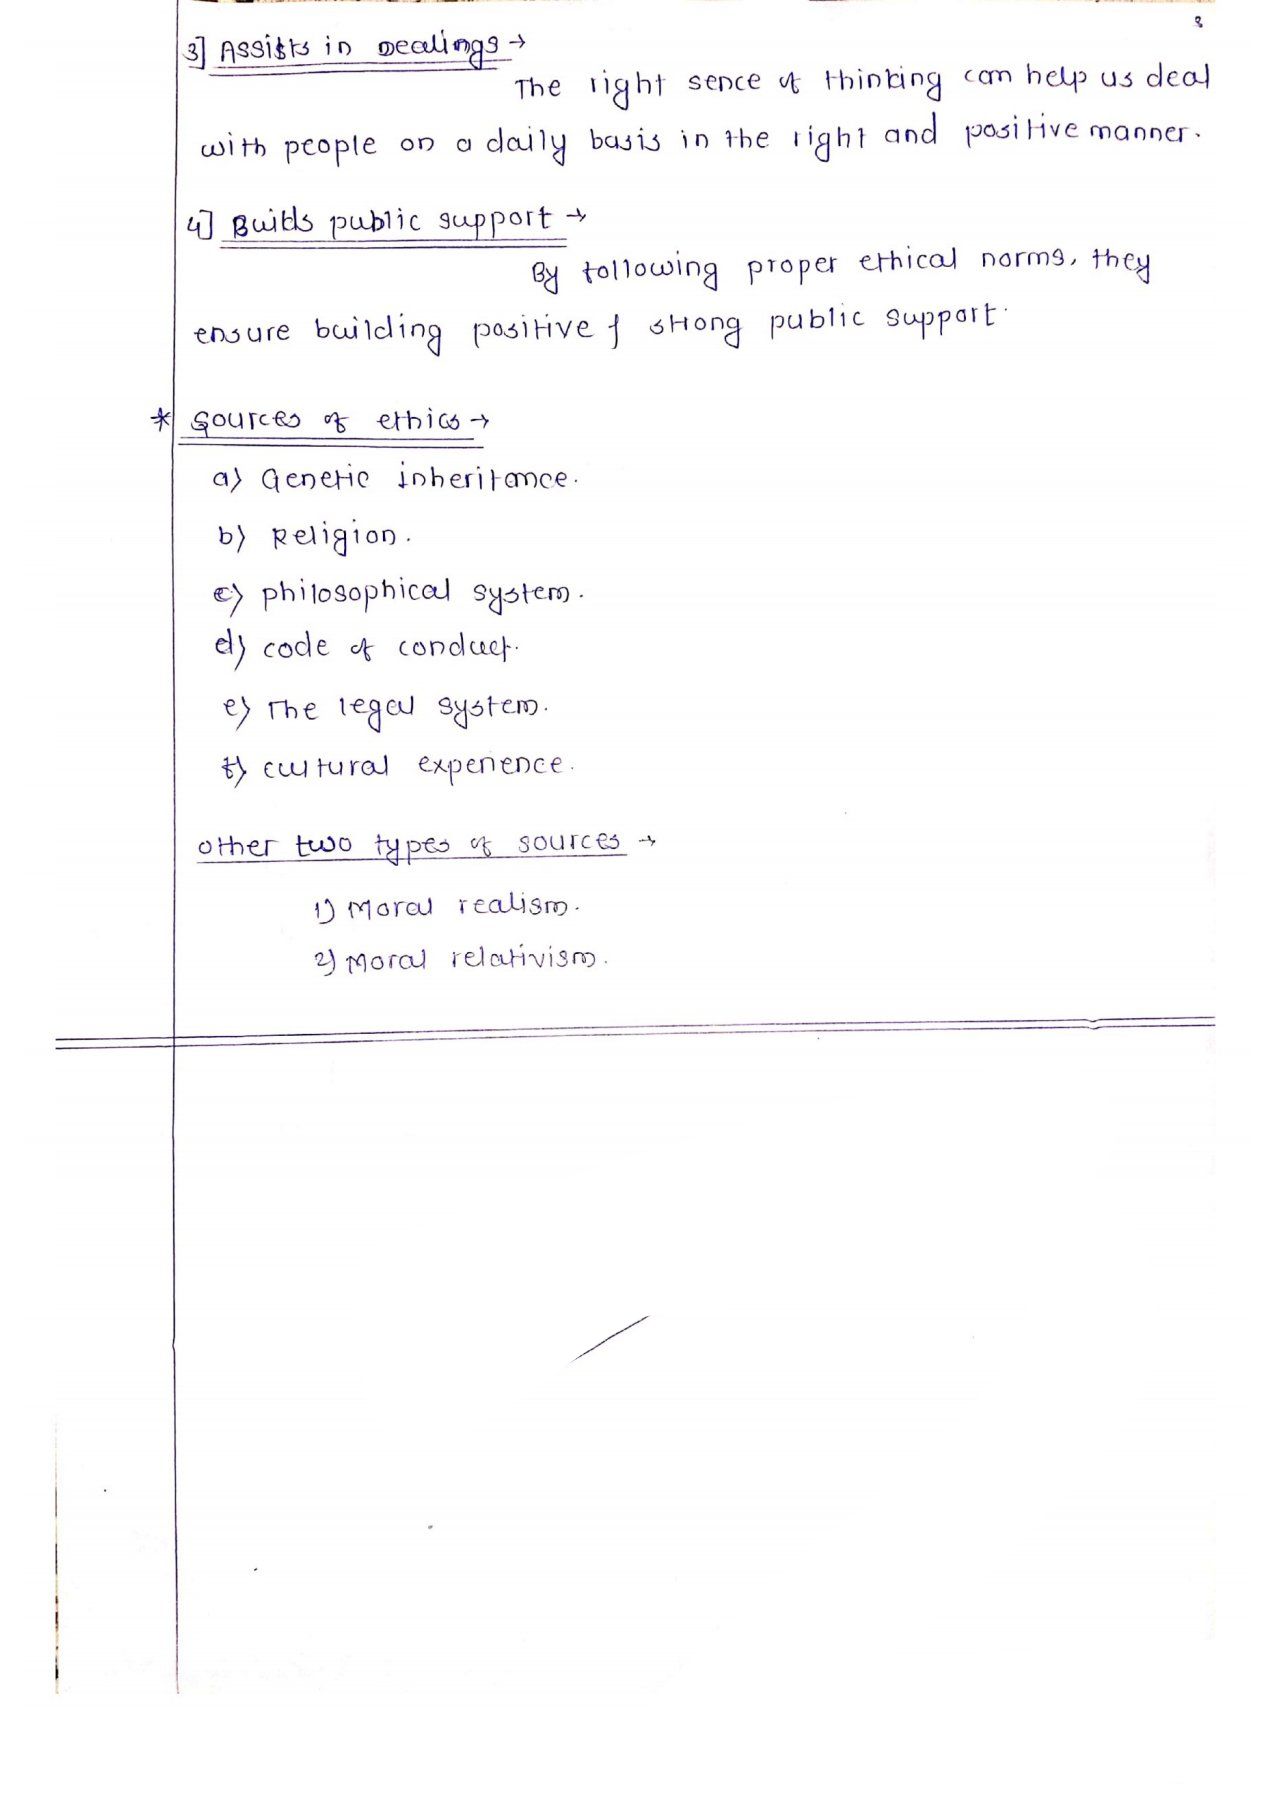 8
3] Assists in Dealings →
The right sence of thinking can help us deal
with people on a daily basis in the right and positive manner.
4] Builds public support →
By following proper ethical norms, they
ensure building positive & strong public support.
* Sources of ethics →
a) Genetic inheritance.
b) Religion.
c) philosophical system.
d) code of conduct.
e) The legal system.
f) cultural experience.
other two types of sources →
1) Moral realism.
2) Moral relativism.